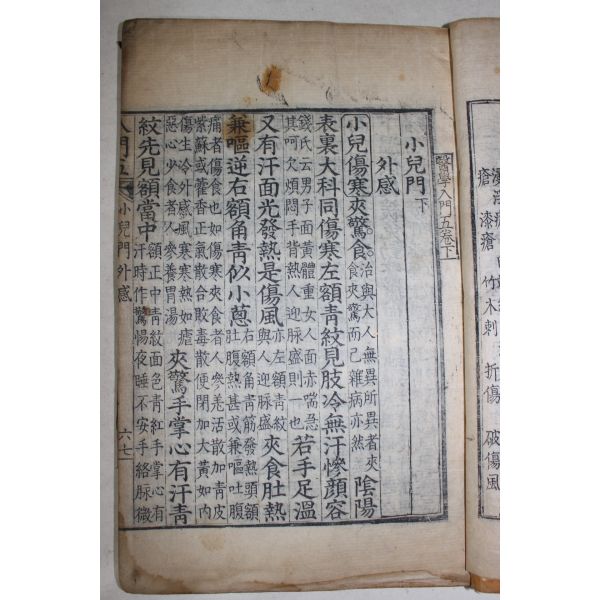 瘡 漆瘡 竹木刺 折傷 破傷風
醫學入門五卷下
小兒門 下
外感
小兒傷寒夾驚食 治與大人無異所異者夾食夾驚而已雜病亦然 陰陽
表裏大科同傷寒左額青紋見肢冷無汗慘顔容
錢氏云男子面黃體重女人面赤喘急其呵欠煩悶手背熱人迎脉盛則一也 若手足溫
又有汗面光發熱是傷風 亦左額青紋與人迎脉盛 夾食肚熱
兼嘔逆右額角青似小蔥 右額角青筋發熱頭額肚腹熱甚或兼嘔吐腹
痛者傷食也如傷寒夾食者人參羌活散加青皮紫蘇或藿香正氣散合敗毒散便閉加大黃如內
傷生冷外感風寒寒熱如瘧惡心少食者人參養胃湯 夾驚手掌心有汗青
紋先見額當中 額正中青紋面色青紅手掌心有汗時作驚惕夜睡不安手絡脉微
入門五 小兒門 外感 六七